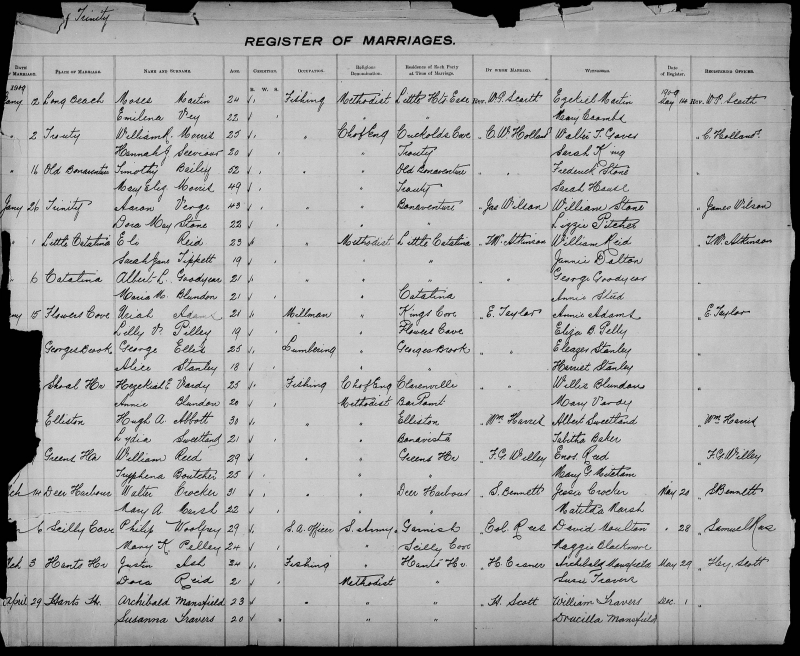 Trinity
REGISTER OF MARRIAGES.
OF MARRIAGE. PLACE OF MARRIAGE. NAME AND SURNAME. AGE. CONDITION. OCCUPATION. Religious Denomination. Residence of Each Party at Time of Marriage. BY WHOM MARRIED. WITNESSES. Date of Register. REGISTERING OFFICER.
B. W. S.
1909 1909
Jany 2 Long Beach Moses Martin 24 Fishing Methodist Little Hts Ease Rev. W.P. Scarth Ezekiel Martin May 14 Rev. W.P. Scarth
Emilena Vey 22 " Mary Coombs
" 2 Trouty William R. Morris 23 " Ch of Eng Cuckolds Cove " C. W. Holland Walter T. Graves " " C. Holland
Hannah J. 20 " Trouty Sarah King
" 16 Old Bonaventure Timothy Bailey 52 " " Old Bonaventure " " Frederick Stone " "
Mary Eliz Morris 49 " Trouty Sarah House
Jany 26 Trinity Aaron Verge 43 " " Bonaventure " Jas Wilson William Stone " " James Wilson
Dora May Stone 22 " " Lizzie Pitcher
" 1 Little Catalina Eli Reid 23 " Methodist Little Catalina " T.W. Atkinson William Reid " " T.W. Atkinson
Sarah Jane Tippett 19 " " Jannie Dalton
" 6 Catalina Albert L. Goodyear 21 " " " " " George Goodyear " "
Maria M. Blundon 21 " Catalina Annie Steed
15 Flowers Cove Uriah Adams 21 Millman " Kings Cove " E. Taylor Annie Adams " " E Taylor
Lilly V. Pelley 19 " Flowers Cove Eliza B. Pelly
Georges Brook George Ellis 25 Lumbering " Georges Brook " " Eleazer Stanley " "
Alice Stanley 18 " " Harriet Stanley
Shoal Hr Hezekiah F. Vardy 25 Fishing Ch of Eng Clarenville " " Willis Blundon " "
Annie Blundon 20 Methodist Mary Vardy
Elliston Hugh A. Abbott 30 " " Elliston " Wm Harris Albert Sweetland " " Wm Harris
Lydia Sweetland 21 " Bonavista Tabitha Baker
Greens Hr William Reed 29 " " Greens Hr " F.G. Willey Enos Reed " " F.G. Willey
Tryphena Boutcher 25 " " Mary G. Mitcham
Feb 14 Deer Harbour Walter Crocker 31 " " Deer Harbour " S. Bennett Jessie Crocker May 20 " S Bennett
Mary A. Marsh 22 " " Matilda Marsh
" 6 Scilly Cove Philip Woolfrey 29 S. A. Officer S. Army Garnish Col. Rees David Moulton " 28 " Samuel Rees
Mary K Pelley 24 " Scilly Cove Maggie Blackmore
Feb 3 Hants Hr Justin Ash 24 Fishing " Hants Hr " H. Archibald Mansfield May 29 " Hy. Scott
Dora Reid 2 Methodist " Susie Travers
April 29 Hants H. Archibald Mansfield 23 " " " " H. Scott William Travers Dec. 1 "
Susanna Travers 20 " " Drucilla Mansfield